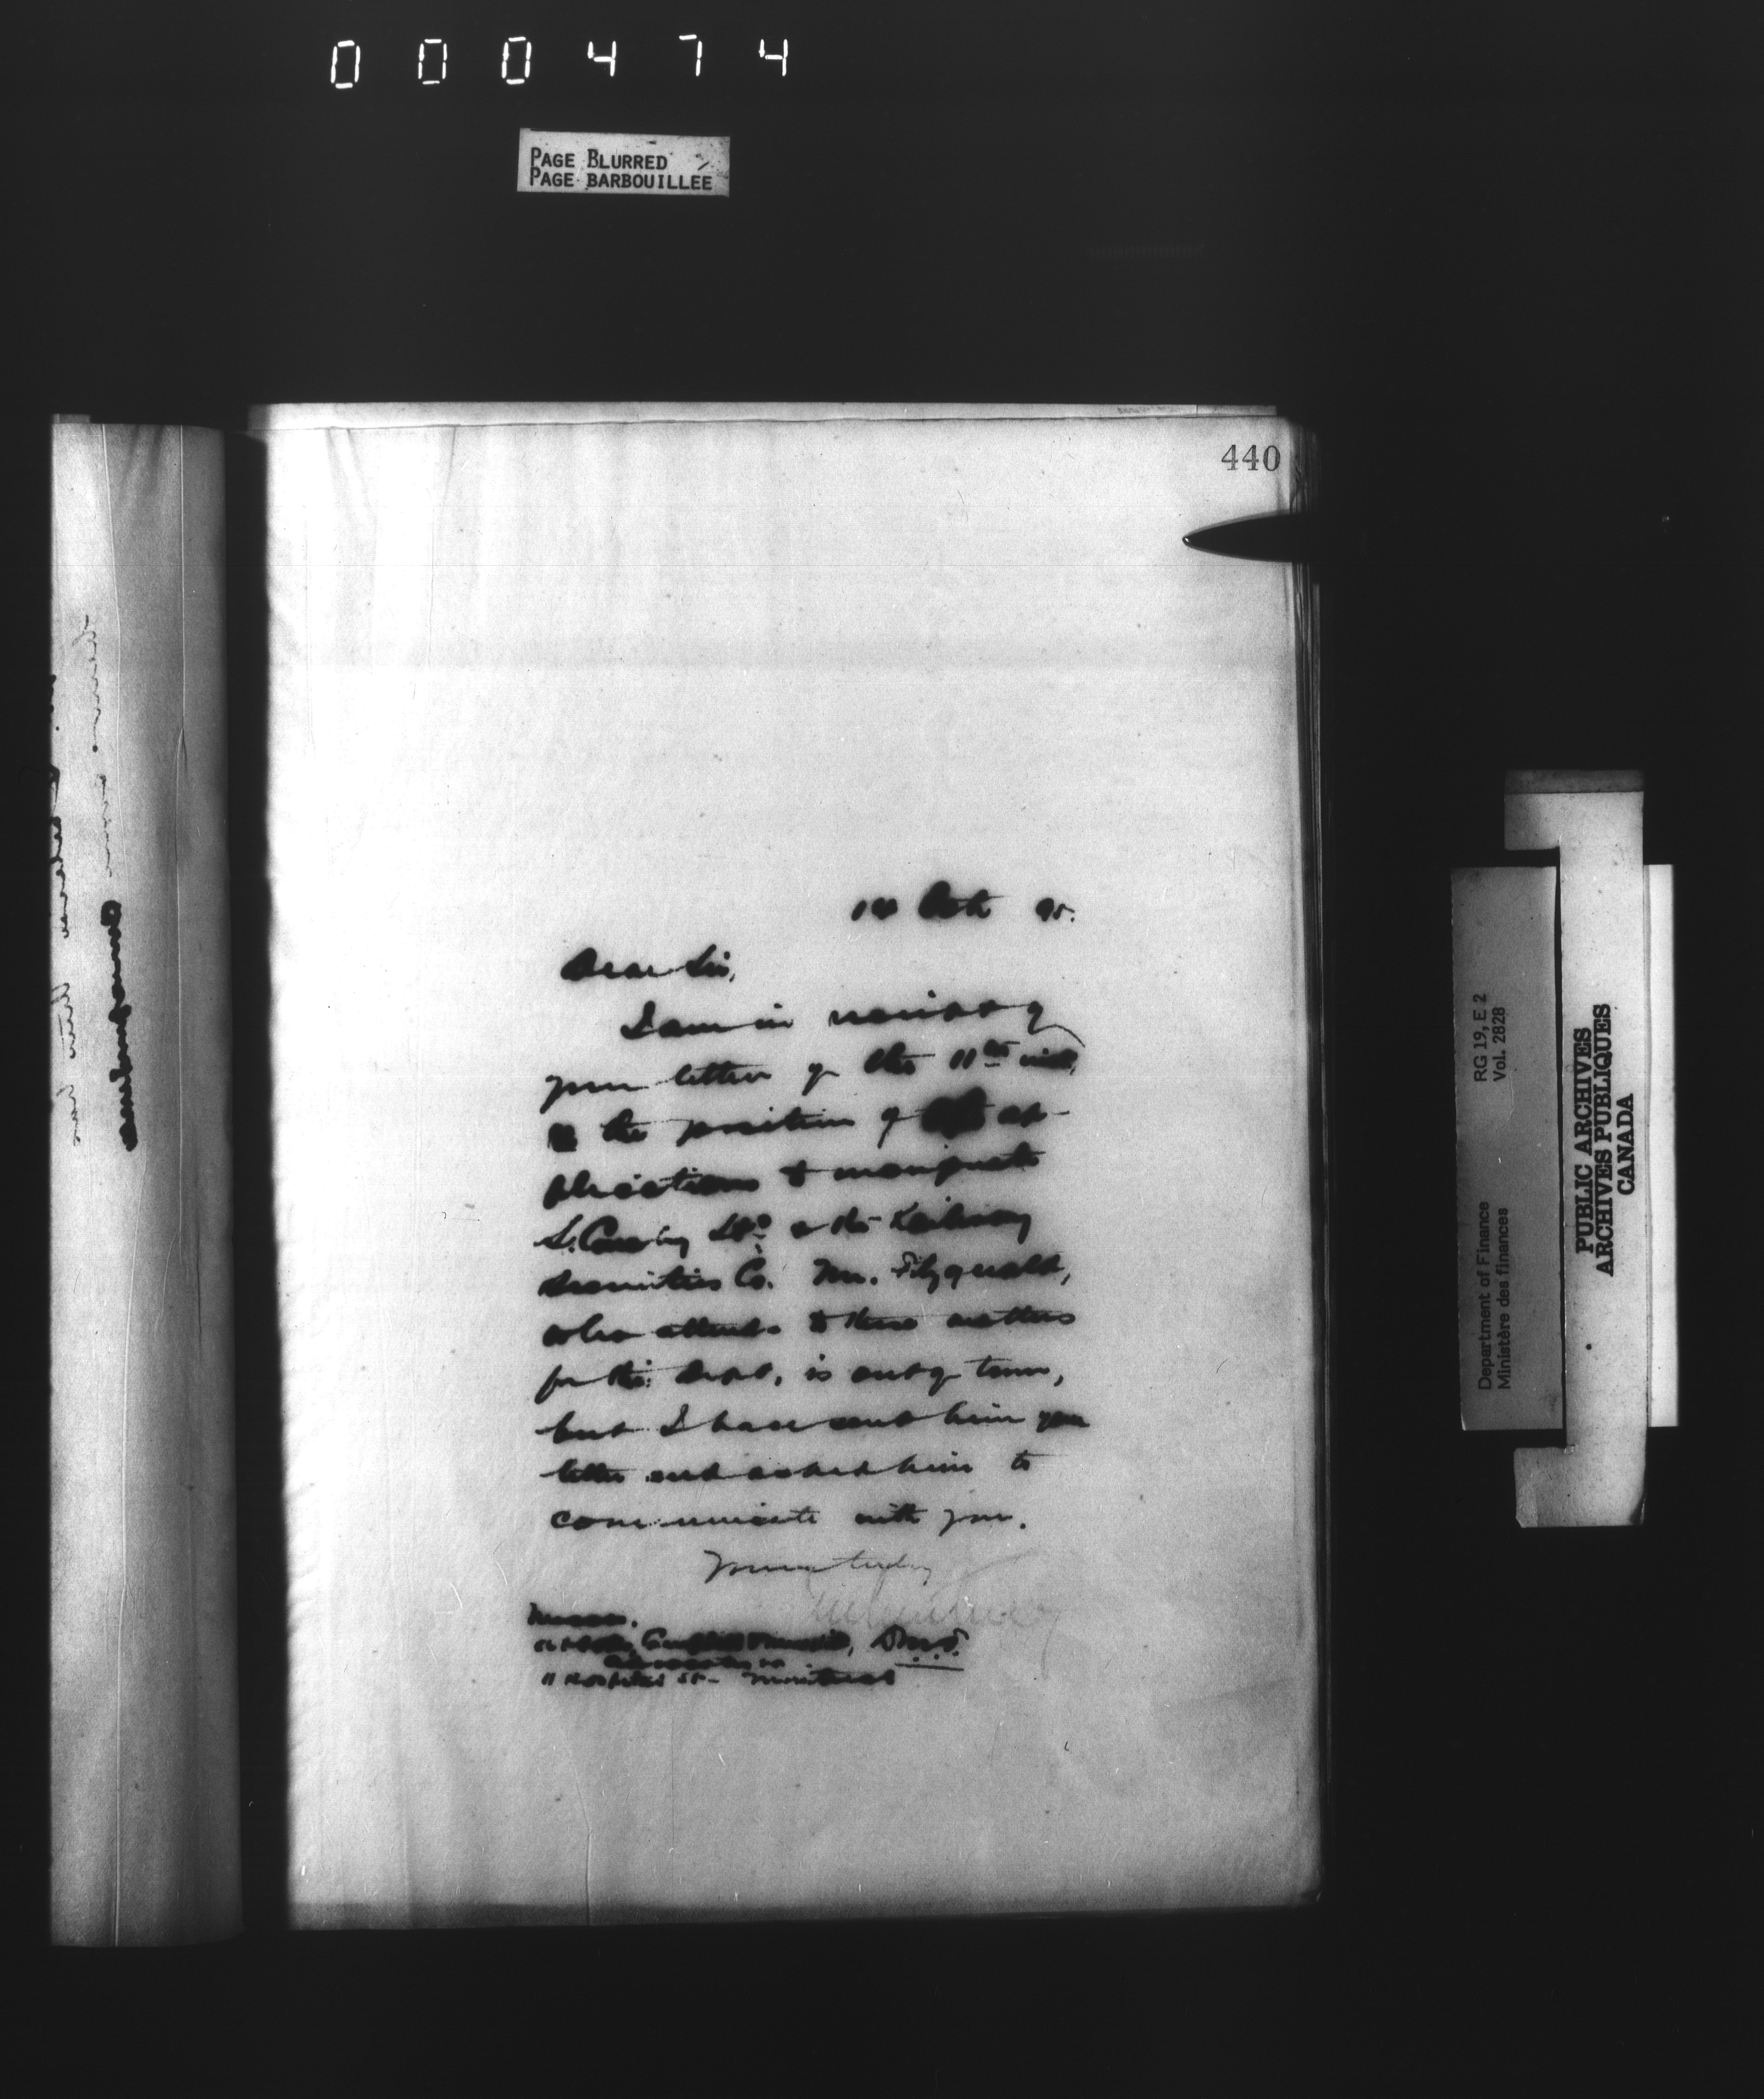 000474
PAGE BLURRED
PAGE BARBOUILLEE
440
14 Oct 95.
Dear Sir,
I am in receipt of
your letter of the 11th inst,
the position of ap-
plications &
S. Carsley Ld. & the Railway
Securities Co. Mr. Fitzgerald,
who attends to these matters
for this Dept, is out of town,
but I have sent him your
letter and asked him to
communicate with you.
Yours truly
Messrs.
D.M.F.
Advocates
11 Hospital St - Montreal
RG 19, E 2
Vol. 2828
Department of Finance
Ministère des finances
PUBLIC ARCHIVES
ARCHIVES PUBLIQUES
CANADA